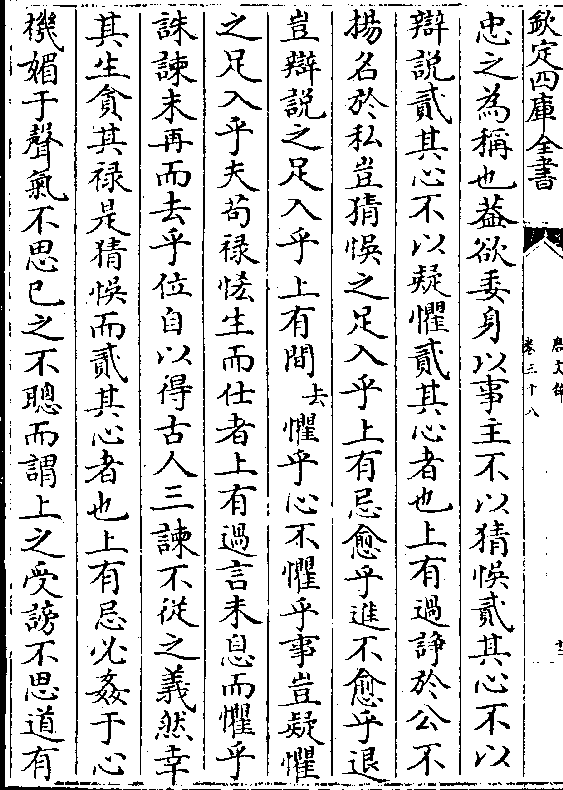 欽定四庫全書
唐文粹
卷三十八
忠之為稱也葢欲委身以事主不以猜悞貳其心不以
辯說貳其心不以疑懼貳其心者也上有過諍於公不
揚名於私豈猜悞之足入乎上有忌愈乎進不愈乎退
豈辯說之足入乎上有間去懼乎心不懼乎事豈疑懼
之足入乎夫苟禄恡生而仕者上有過言未息而懼乎
誅諫未再而去乎位自以得古人三諫不從之義然幸
其生貪其禄是猜悞而貳其心者也上有忌必姦于心
機媚于聲氣不思已之不聰而謂上之受謗不思道有